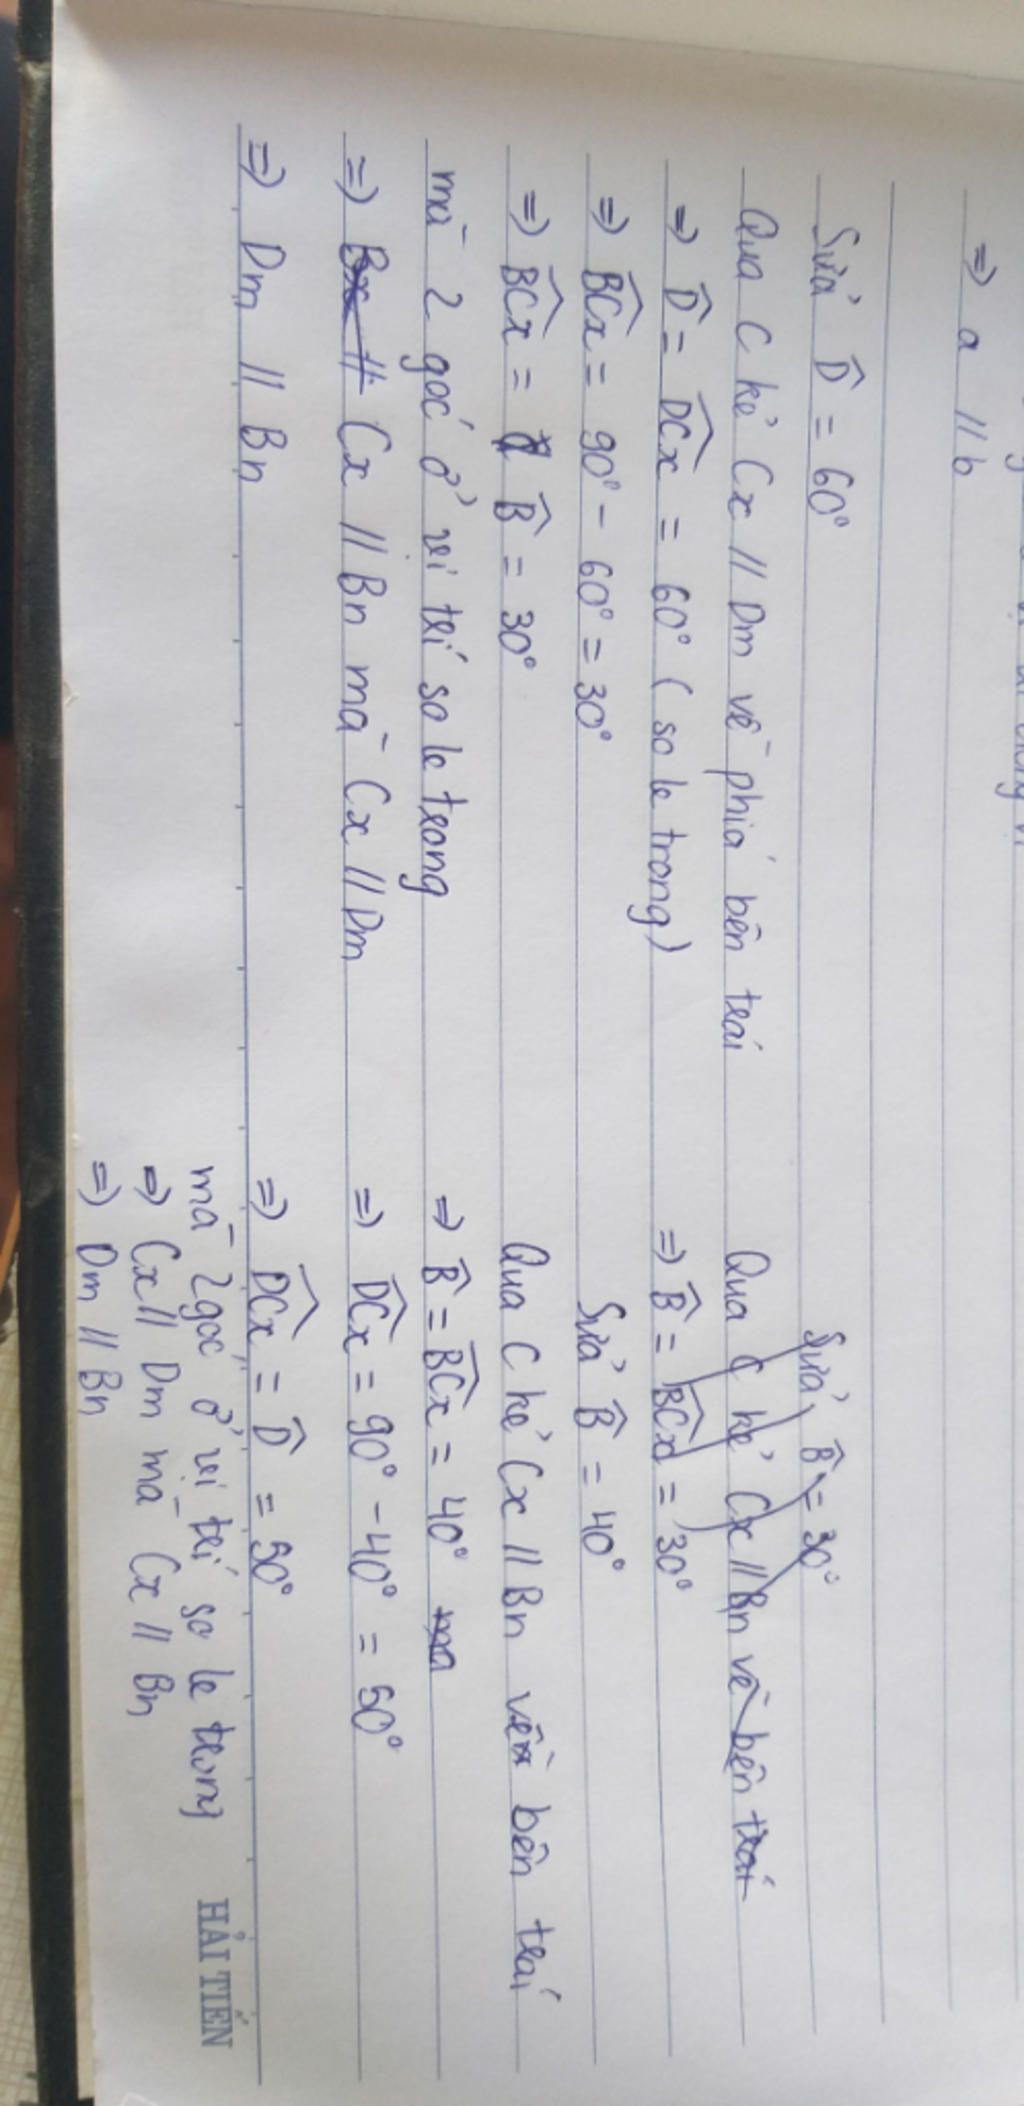 => a // b
Sửa D̂ = 60°
Qua C kẻ Cx // Dm về phía bên trái
=> D̂ = DCx = 60° ( so le trong )
=> BCx = 90° - 60° = 30°
=> BCx = B̂ = 30°
mà 2 góc ở vị trí so le trong
=> Bx // Cx // Bn mà Cx // Dm
=> Dm // Bn
Sửa B̂ = 30°
Qua C kẻ Cx // Bn về bên trái
=> B̂ = BCx = 30°
Sửa B̂ = 40°
Qua C kẻ Cx // Bn về bên trái
=> B̂ = BCx = 40° mà
=> DCx = 90° - 40° = 50°
=> DCx = D̂ = 50°
mà 2 góc ở vị trí so le trong
=> Cx // Dm mà Cx // Bn
=> Dm // Bn
HẢI TIẾN